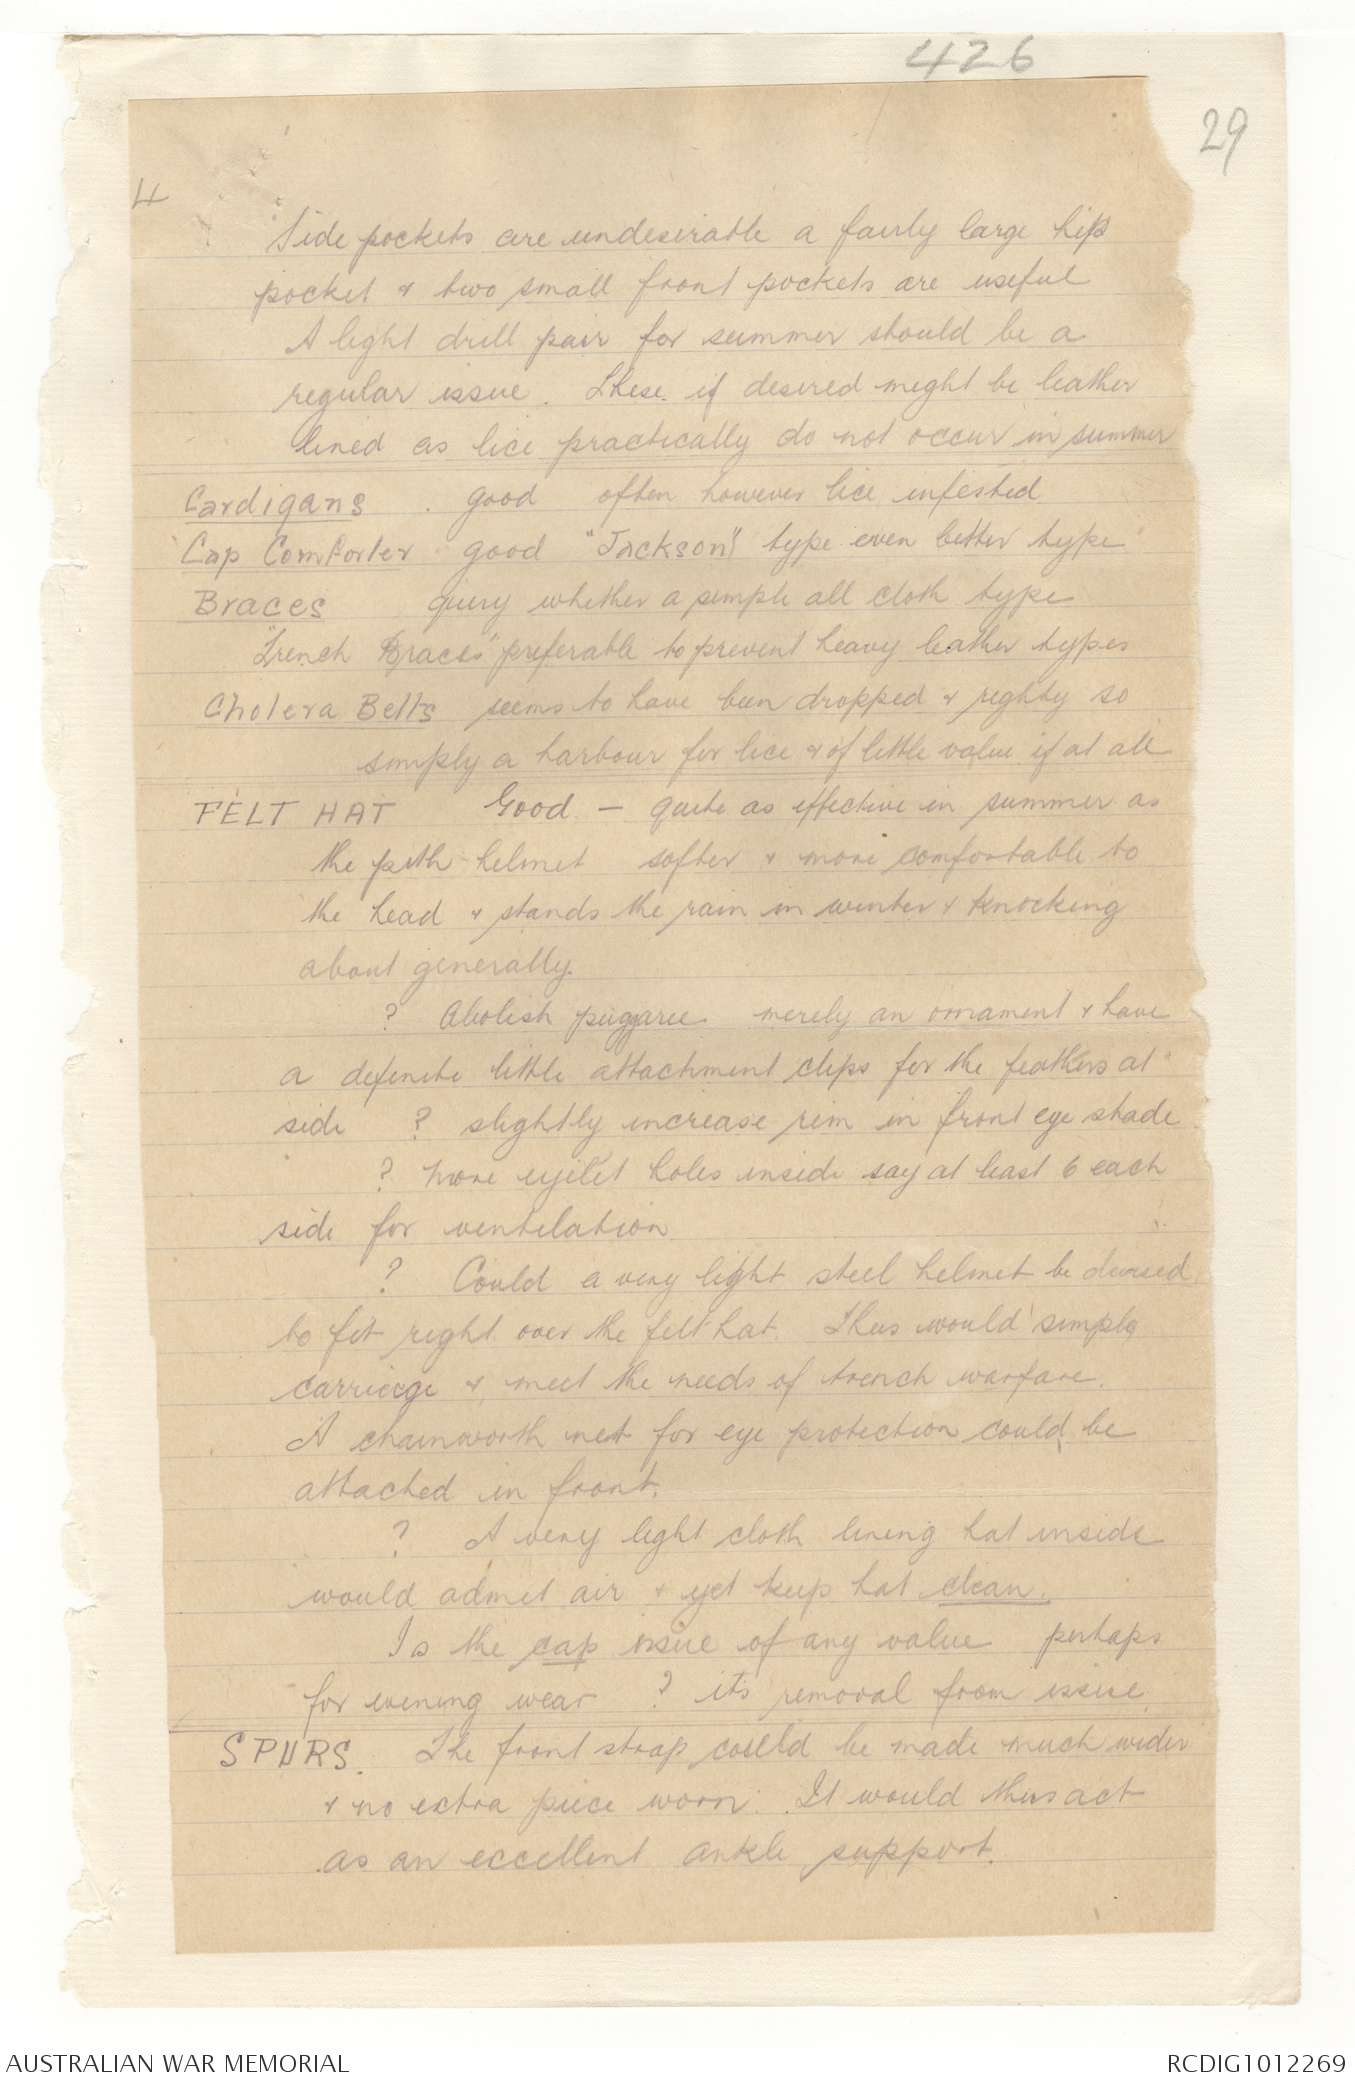 426
29
4
Side pockets are undesirable a fairly large hip
pocket & two small front pockets are useful
A light drill pair for summer should be a
regular issue. These if desired might be leather
lined as lice practically do not occur in summer
Cardigans . good often however lice infested
Cap Comforter good "Jackson" type even better type
Braces query whether a simple all cloth type
"Trench Braces" preferable to prevent heavy leather types
Cholera Belts seems to have been dropped & rightly so
simply a harbour for lice & of little value if at all
FELT HAT Good – quite as effective in summer as
the pith helmet softer & more comfortable to
the head & stands the rain in winter & knocking
about generally.
? Abolish puggaree merely an ornament & have
a definite little attachment clips for the feathers at
side ? slightly increase rim in front eye shade
? More eyelet holes inside say at least 6 each
side for ventilation
? Could a very light steel helmet be devised
to fit right over the felt hat. This would simple
carriage & meet the needs of trench warfare.
A chainwork net for eye protection could be
attached in front.
? A very light cloth lining hat inside
would admit air & yet keep hat clean.
Is the cap issue of any value perhaps
for evening wear ? its removal from issue
SPURS. The front strap could be made much wider
& no extra piece worn. It would thus act
as an excellent ankle support.
AUSTRALIAN WAR MEMORIAL
RCDIG1012269